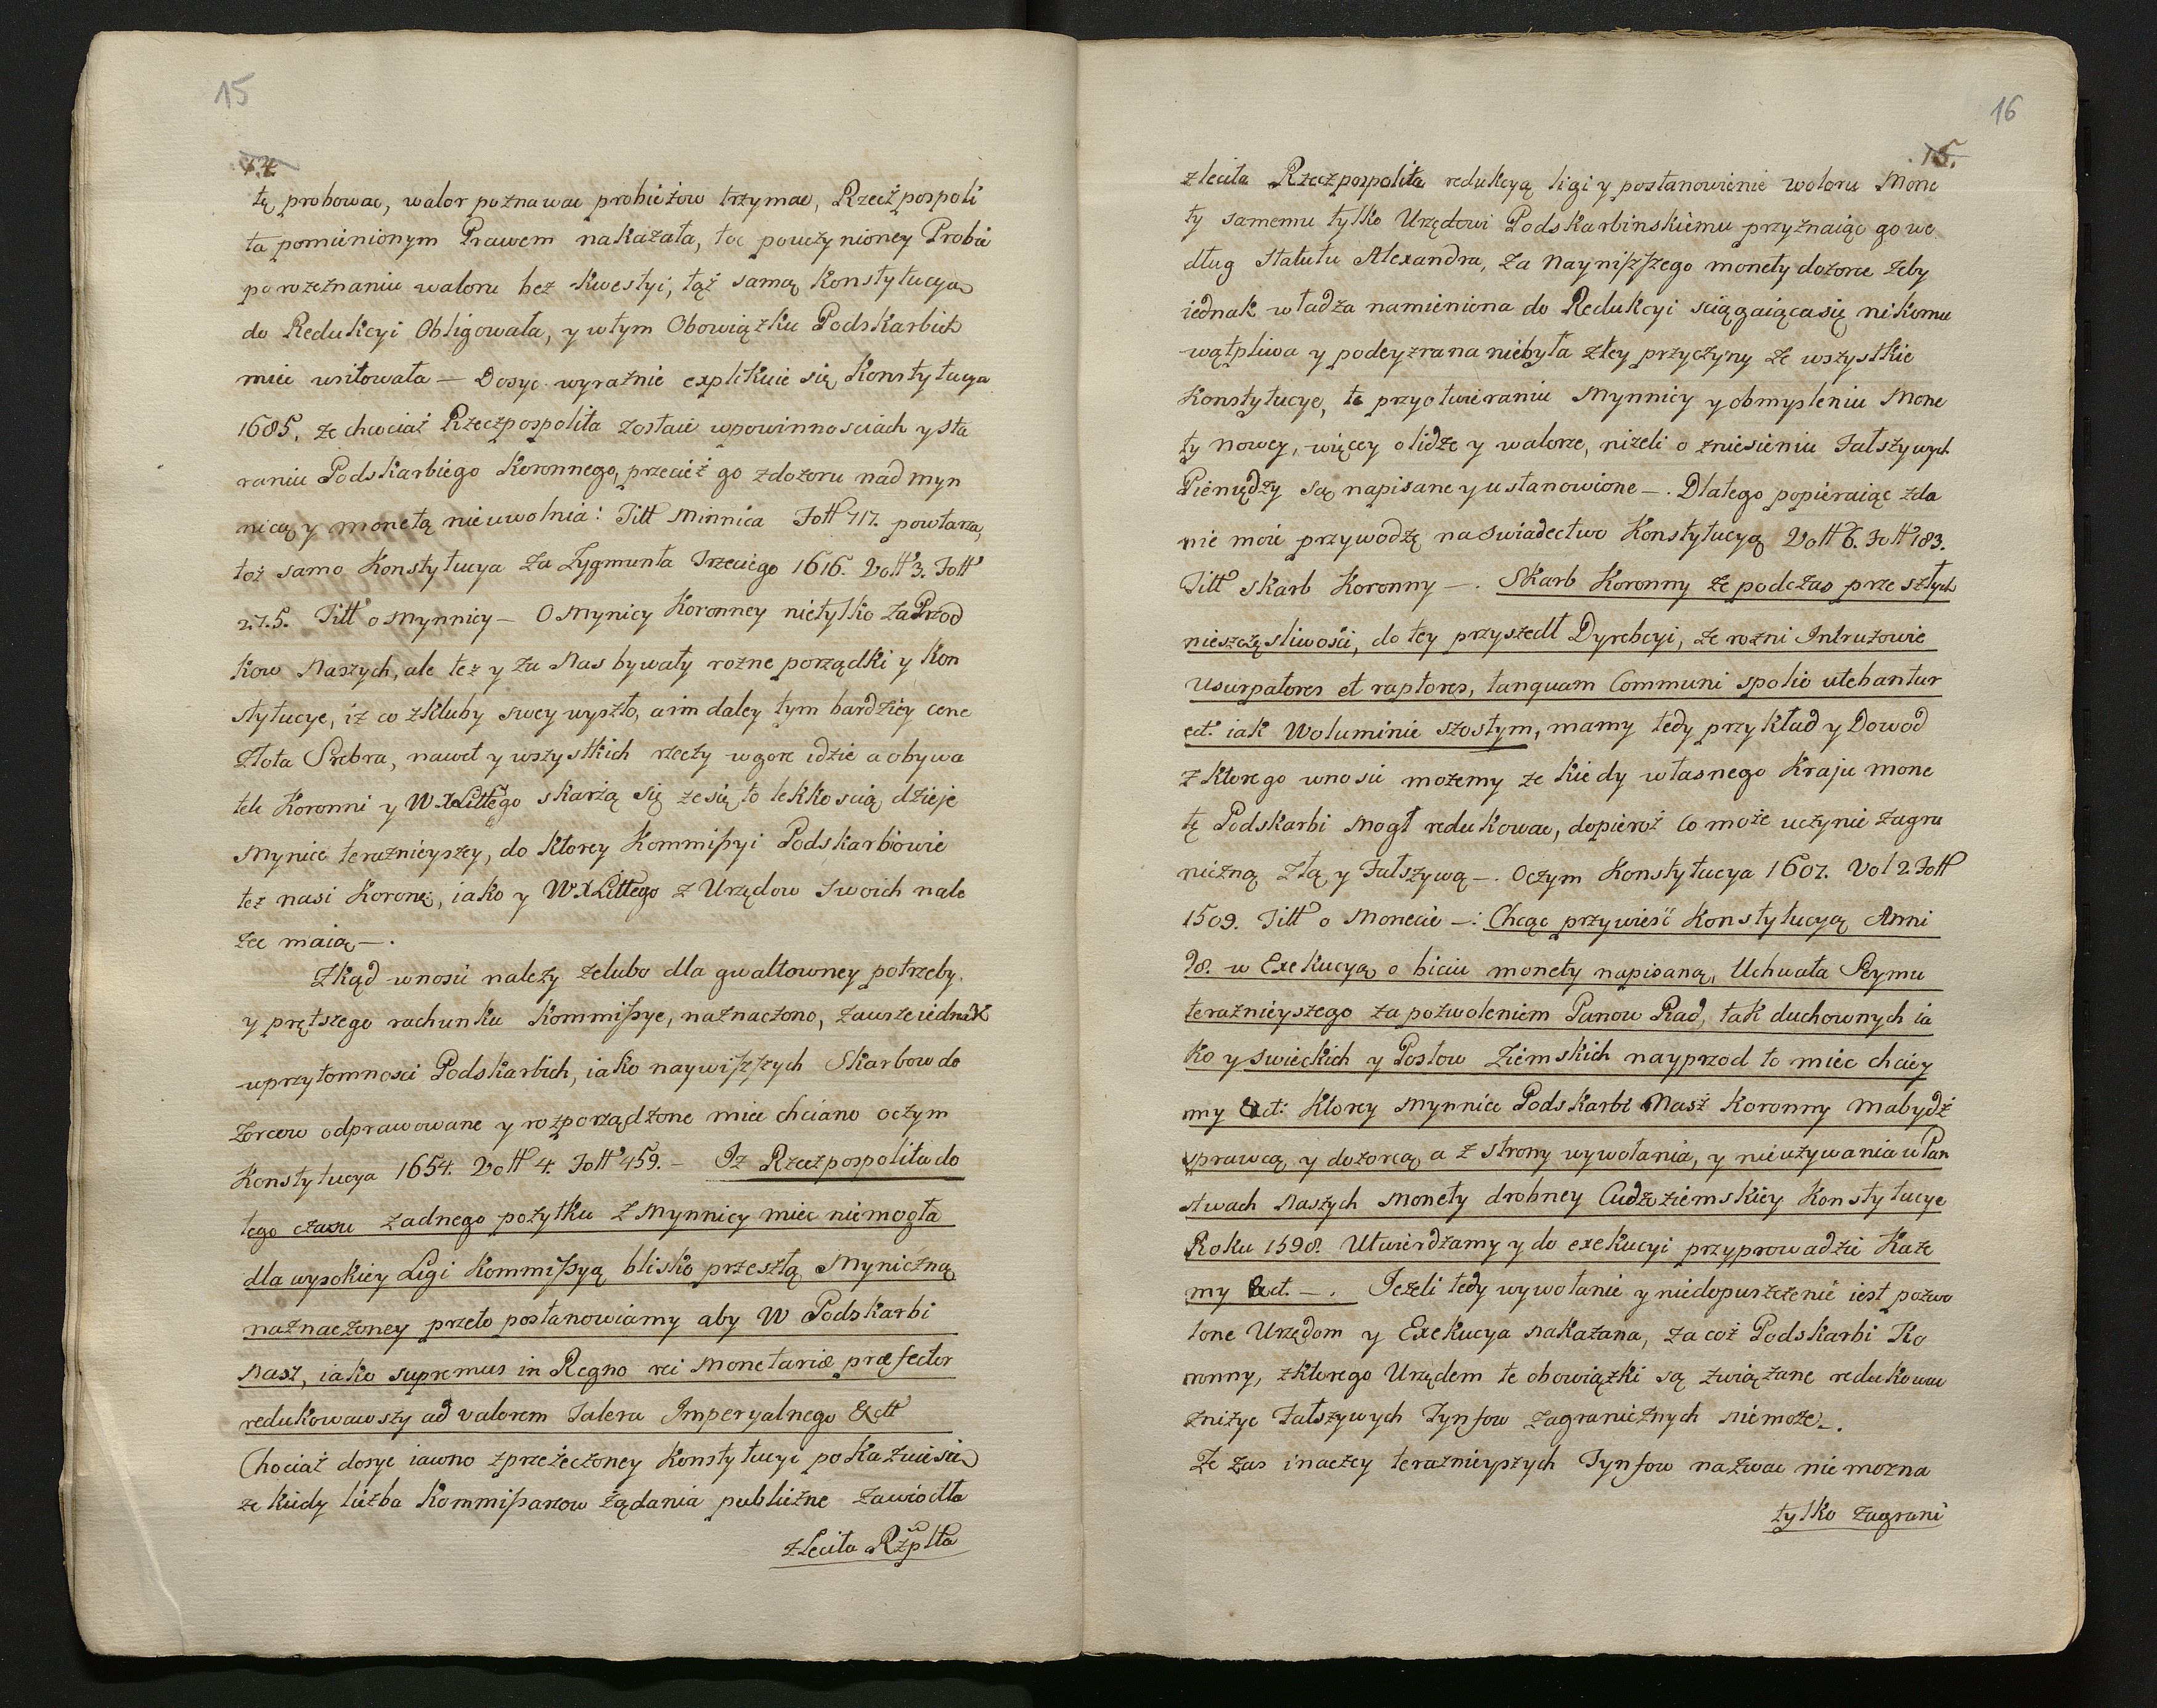 15
14.
tę probowac, walor poznawac probieżow trzymac, Rzecżpospoli
ta pomienionym Prawem nakazała, toc poucżynioney Probie
po rozeznaniu waloru bez kwestyi, tąż samą Konstytucyą
do Redukcyi Obligowała, y wtym Obowiązku Podskarbich
miec usiłowała — Dosyc wyraznie explikuie się Konstytucya
1685. ze chociaż Rzeczpospolita zostaie wpowinnosciach y sta
raniu Podskarbiego Koronnego, przecież go zdozoru nad myn
nicą y monetą nieuwolnia: Titt Minnica Foll 717. powtarza,
toż samo Konstytucya za Zygmunta Trzeciego 1616. Voll 3. Foll
275. Titt o Mynnicy — O Mynicy Koronney nietylko za Przod
kow Naszych, ale tez y za Nas bywały rozne porządki y Kon
stytucye, iż co zkluby swey wyszło, a im daley tym bardziey cene
Złota Srebra, nawet y wszystkich rzeczy wgore idzie a obywa
tele Koronni y WXLittego skarżą się ze się to lekkoscią dzieje
Mynice teraznieyszey, do ktorey Kommissyi Podskarbiowie
tez nasi Koronni, iako y WXLittego z Urzędow swoich nale
zec maią —.
Zkąd wnosic nalezy zelubo dla gwałtowney potrzeby
y prętszego rachunku Kommissye, naznaczono, zawsze iednak
wprzytomnosci Podskarbich, iako naywisszych Skarbow do
zorcow odprawowane y rozporządzone miec chciano oczym
Konstytucya 1654. Voll 4. Foll 459. — Iz Rzeczpospolita do
tego czasu zadnego pozytku z Mynnicy miec niemogła
dla wysokiey Ligi Kommissyą blisko przeszłą Myniczną
naznaczoney przeto postanowiamy aby W Podskarbi
Nasz, iako supremus in Regno rei Monetariæ præfector
redukowawszy ad valorem Talera Imperyalnego &ctt
Chociaż dosyc iawno zprzeżeczoney Konstytucyi pokazuie się
ze kiedy liczba Kommissarzow żądania publiczne zawiodła
zleciła Rzplta
16
15.
zleciła Rzeczpospolita redukcyą ligi y postanowienie woloru Mone
ty samemu tylko Urzędowi Podskarbinskiemu przyznaiąc go we
dług Statutu Alexandra, za Naynisszego monety dozorce zeby
iednak władza namieniona do Redukcyi sciągaiąca się nikomu
wątpliwa y podeyzrana niebyła ztey przyczyny ze wszystkie
Konstytucye, te przyotwieraniu Mynnicy y obmysleniu Mone
ty nowey, więcey o lidze y walorze, nizeli o zniesieniu Fałszywych
Pieniędzy są napisane y ustanowione —. Dlatego popieraiąc zda
nie moie przywodzę na Swiadectwo Konstytucyą Voll 6. Foll 183.
Titt Skarb Koronny —. Skarb Koronny ze podczas przeszłych
nieszczęsliwości, do tey przyszedł Dyrebcyi, ze rozni Intruzowie
Usurpatores et raptores, tanquam Communi spolio utebantur
ect. iak Woluminie szostym, mamy tedy przykład y Dowod
z ktorego wnosic mozemy ze kiedy własnego Kraju mone
tę Podskarbi mogł redukowac, dopieroż co może uczynic zagra
niczną złą y Fałszywą —. Oczym Konstytucya 1607. Vol 2. Foll
1509. Titt o Monecie —: Chcąc przywieść Konstytucyą Anni
98. w Exekucyą o biciu monety napisaną, Uchwała Seymu
teraznieyszego za pozwoleniem Panow Rad, tak duchownych ia
ko y swieckich y Posłow Ziemskich nayprzod to miec chcie
my &ct: Ktorey Mynnice Podskarbi Nasz Koronny mabydź
sprawcą y dozorcą a z strony wywołania, y nieuzywania w Pan
stwach Naszych monety drobney Cudzoziemskiey Konstytucye
Roku 1598. Utwierdzamy y do exekucyi przyprowadzic Kaze
my &ct. —. Jezeli tedy wywołanie y niedopuszczenie iest pozwo
lone Urzędom y Exekucya nakazana, za coż Podskarbi Ko
ronny, zktorego Urzędem te obowiązki są związane redukowac
znizyc Fałszywych Tynfow zagranicznych niemoze —.
Ze zas inaczey teraznieyszych Tynfow nazwac nie mozna
tylko zagrani